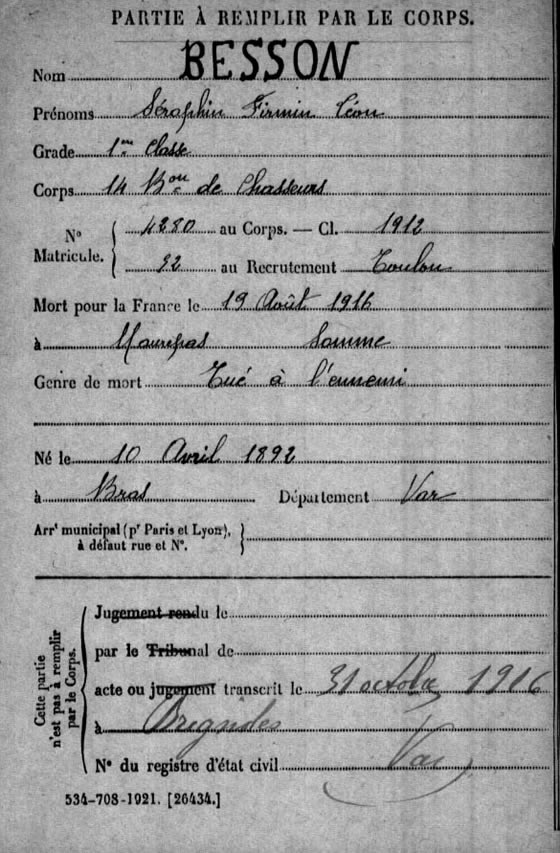 PARTIE À REMPLIR PAR LE CORPS.
Nom BESSON
Prénoms Séraphin Firmin Léon
Grade 1re Classe
Corps 14 Bon de Chasseurs
N° Matricule. 4280 au Corps. — Cl. 1912
92 au Recrutement Toulon
Mort pour la France le 19 Août 1916
à Maurepas Somme
Genre de mort Tué à l'ennemi
Né le 10 Avril 1892
à Bras Département Var
Arrt municipal (pr Paris et Lyon),
à défaut rue et N°.
Cette partie n'est pas à remplir par le Corps.
Jugement rendu le
par le Tribunal de
acte ou jugement transcrit le 31 octobre 1916
à Brignoles
Var
N° du registre d'état civil
534-708-1921. [26434.]